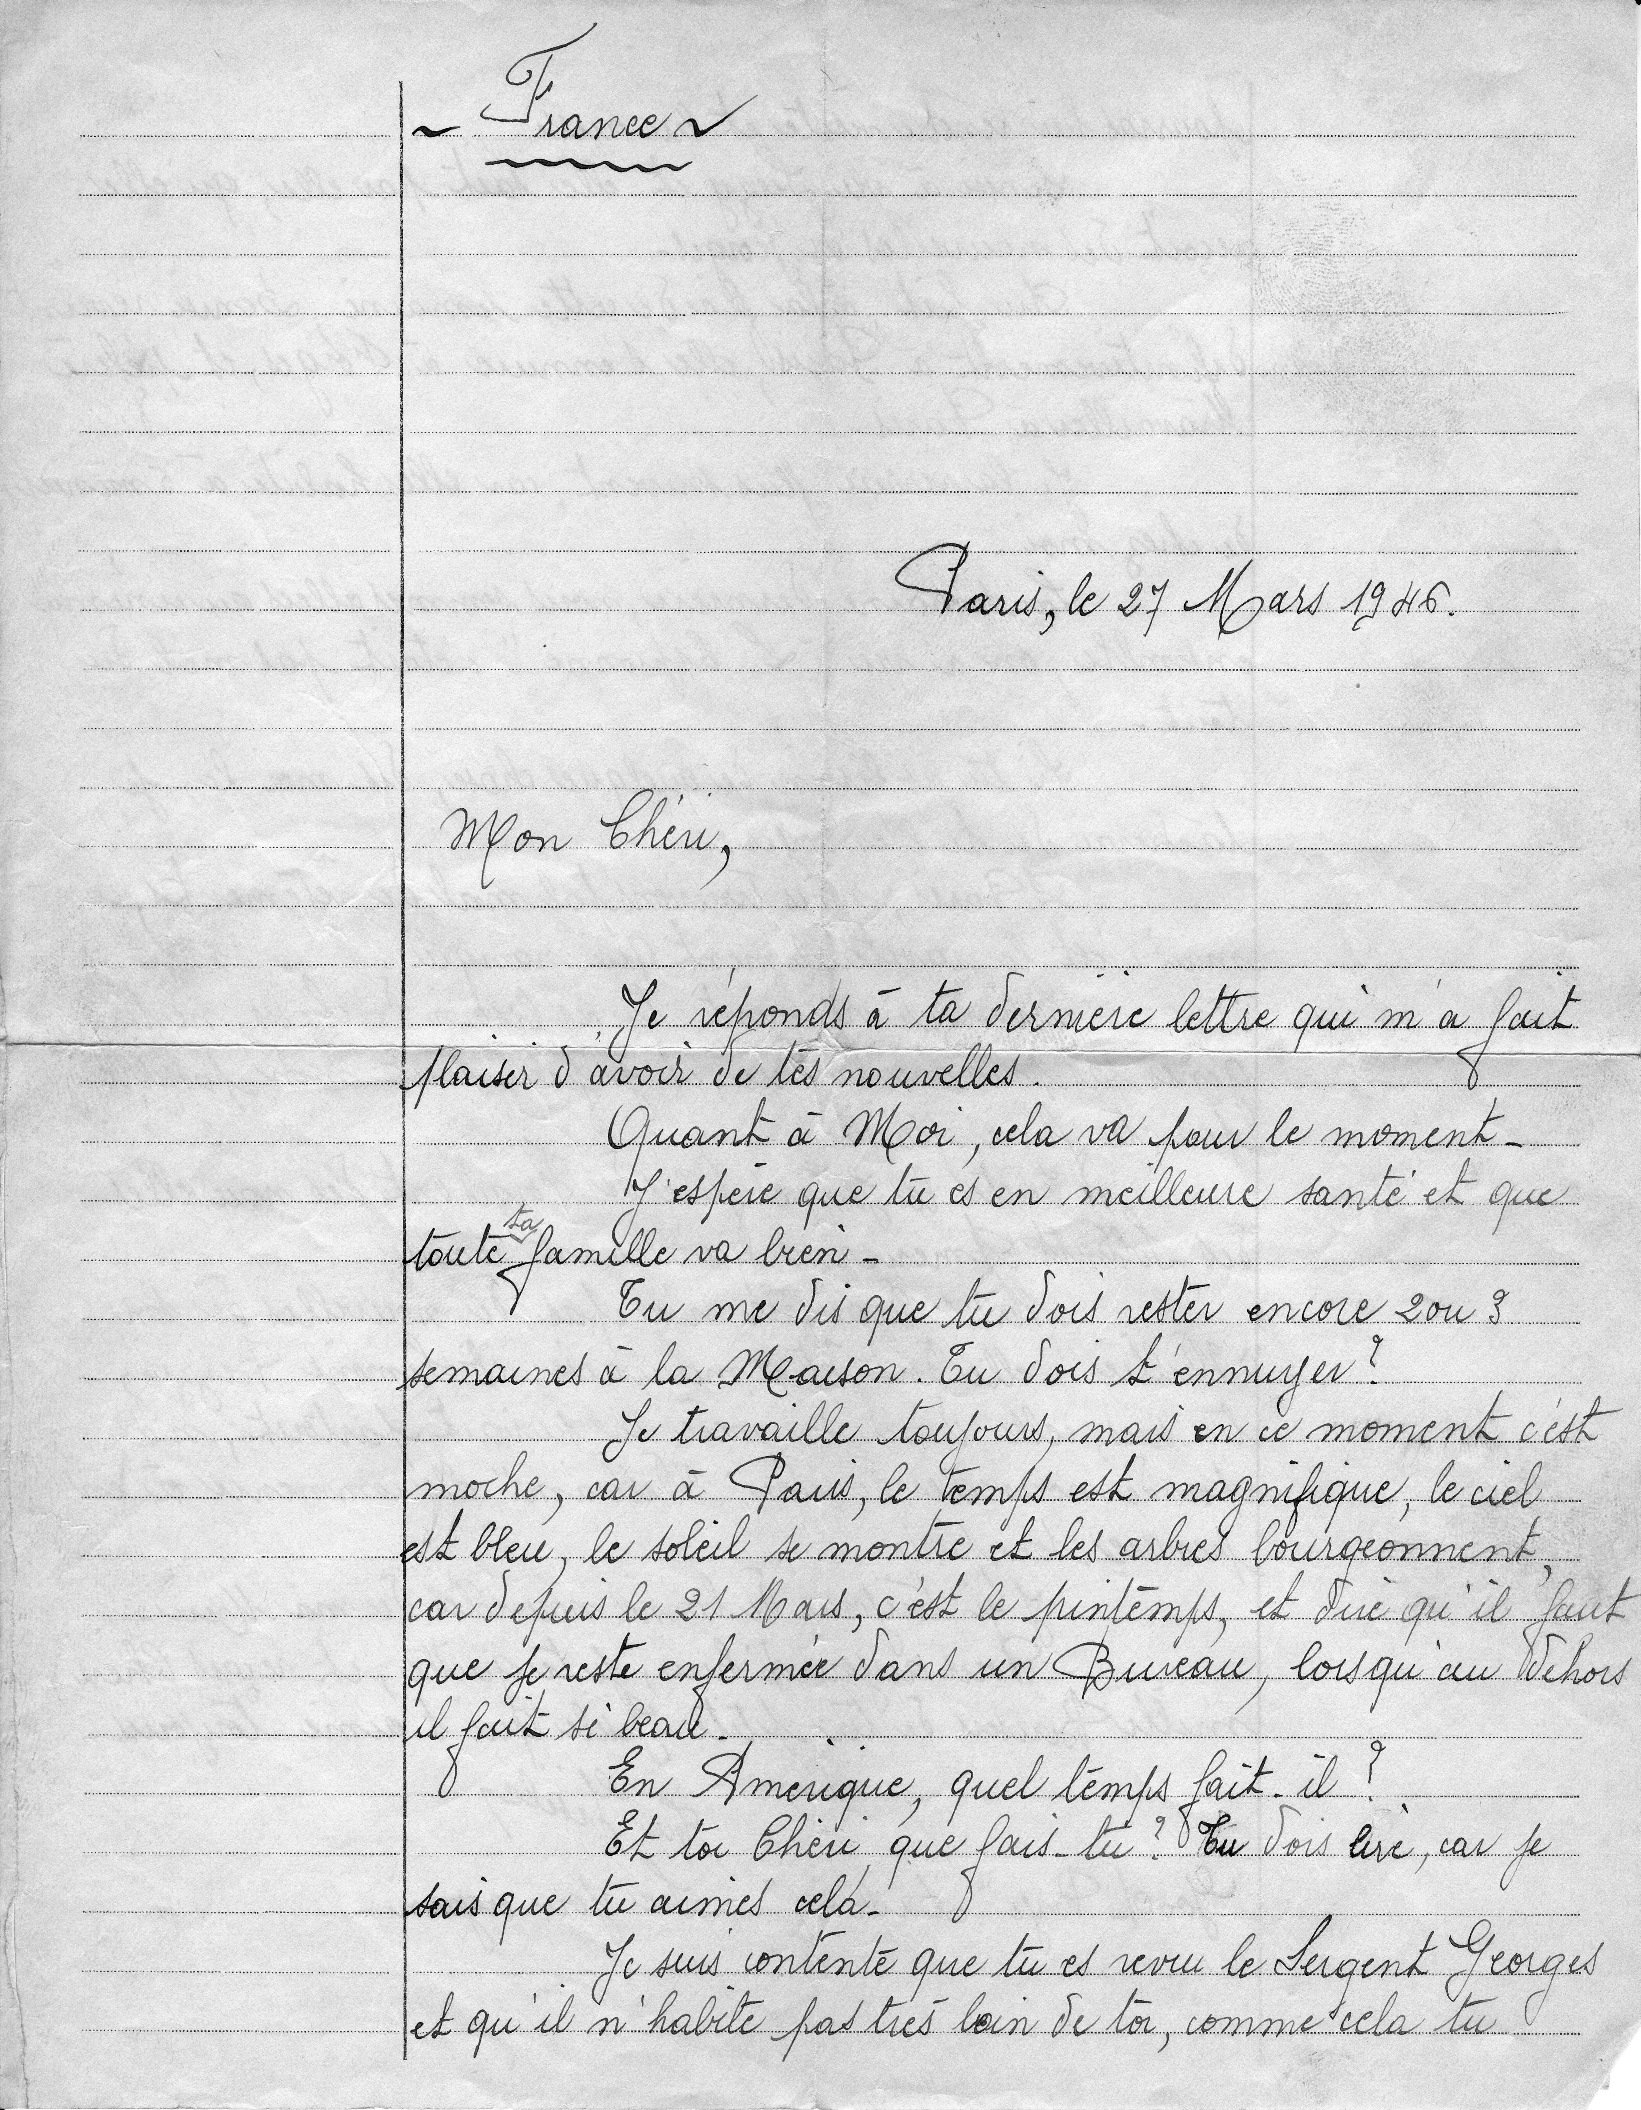 ~ France ~
Paris, le 27 Mars 1946.
Mon Chéri,
Je réponds à ta dernière lettre qui m'a fait
plaisir d'avoir de tes nouvelles.
Quant à Moi, cela va pour le moment -
J'espère que tu es en meilleure santé et que
toute ta famille va bien -
Tu me dis que tu dois rester encore 2 ou 3
semaines à la Maison. Tu dois t'ennuyer ?
Je travaille toujours, mais en ce moment c'est
moche, car à Paris, le temps est magnifique, le ciel
est bleu, le soleil se montre et les arbres bourgeonnent,
car depuis le 21 Mars, c'est le printemps, et dire qu'il faut
que je reste enfermée dans un Bureau, lorsqu'au dehors
il fait si beau.
En Amérique, quel temps fait-il ?
Et toi Chéri, que fais-tu ? Tu dois lire, car je
sais que tu aimes cela -
Je suis contente que tu es revu le Sergent Georges
et qu'il n'habite pas très loin de toi, comme cela tu